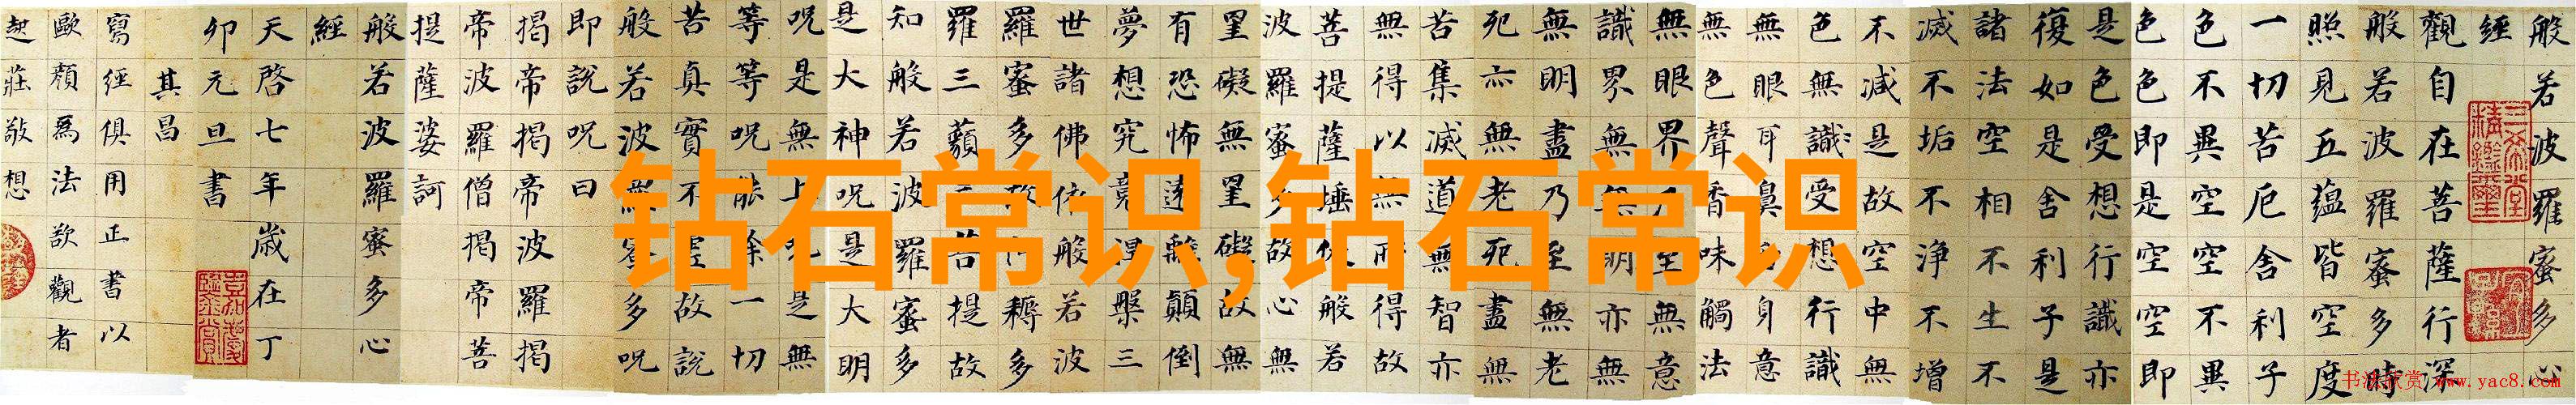 般若波羅蜜多心
經
觀自在菩薩行深
般若波羅蜜多時
照見五蘊皆空度
一切苦厄舍利子
色不異空空不異
色色即是空空即
是色受想行識亦
復如是舍利子是
諸法空相不生不
滅不垢不淨不增
不減是故空中無
色無識受想行識
無眼耳鼻舌身意
無色聲香味觸法
無眼界乃至無意
識界無無明亦無
無明盡乃至無老
死亦無老死盡無
苦集滅道無智亦
無得以無所得故
菩提薩埵依般若
波羅蜜多故心無
罣礙無罣礙故無
有恐怖遠離顛倒
夢想究竟涅槃三
世諸佛依般若波
羅蜜多故得耨多
羅三藐三菩提故
知般若波羅蜜多
是大神呪是大明
呪是無上呪是無
等等呪能除一切
苦真實不虛故說
般若波羅蜜多呪
即說呪曰
揭帝揭帝波羅揭
帝波羅僧揭帝菩
提薩婆訶
般若波羅蜜多心
經
天啓七年歲在丁
卯元旦書
其昌
寫經俱用正書以
歐顏為法欲觀者
起莊敬想
钻石常识,钻石常识
书法欣赏 www.yac8.com